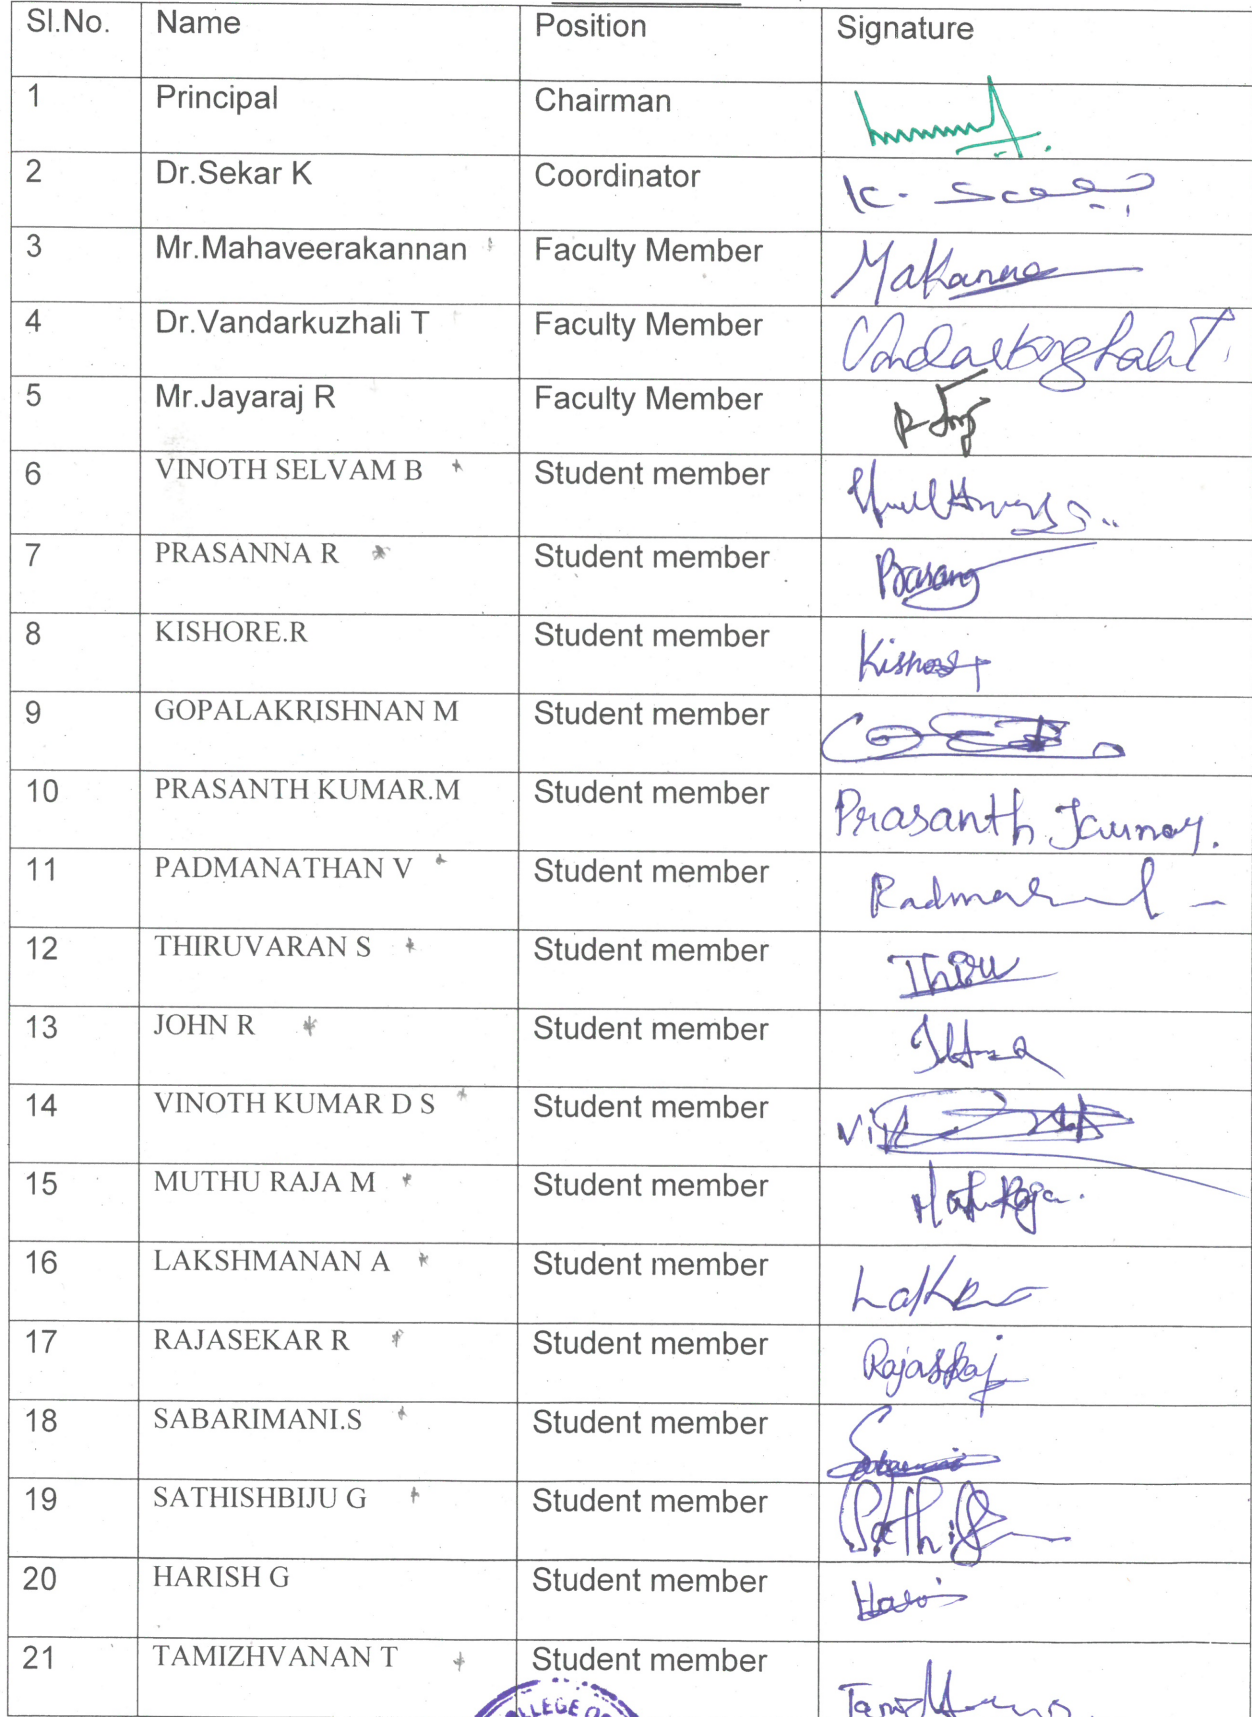 Sl.No. Name Position Signature
1 Principal Chairman
2 Dr.Sekar K Coordinator K.
3 Mr.Mahaveerakannan Faculty Member
4 Dr.Vandarkuzhali T Faculty Member
5 Mr.Jayaraj R Faculty Member
6 VINOTH SELVAM B Student member
7 PRASANNA R Student member
8 KISHORE.R Student member
9 GOPALAKRISHNAN M Student member
10 PRASANTH KUMAR.M Student member Prasanth
11 PADMANATHAN V Student member
12 THIRUVARAN S Student member Thiru
13 JOHN R Student member
14 VINOTH KUMAR D S Student member
15 MUTHU RAJA M Student member
16 LAKSHMANAN A Student member
17 RAJASEKAR R Student member
18 SABARIMANI.S Student member
19 SATHISHBIJU G Student member
20 HARISH G Student member
21 TAMIZHVANAN T Student member